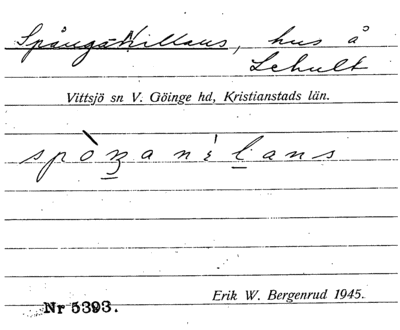 Spånga-Nillans, hus å
Lehult
Vittsjö sn V. Göinge hd, Kristianstads län.
spò̱ʒa nìḻans
Nr 5393.
Erik W. Bergenrud 1945.